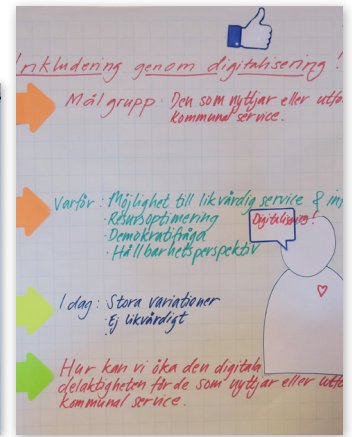 Inkludering genom digitalisering!
Målgrupp: Den som nyttjar eller utfö
kommunal service.
Varför: Möjlighet till likvärdig service & in
· Resursoptimering
· Demokratifråga
· Hållbarhetsperspektiv
Digitalisering!
I dag: Stora variationer
· Ej likvärdigt
Hur kan vi öka den digitala
delaktigheten för de som nyttjar eller utfö
kommunal service.